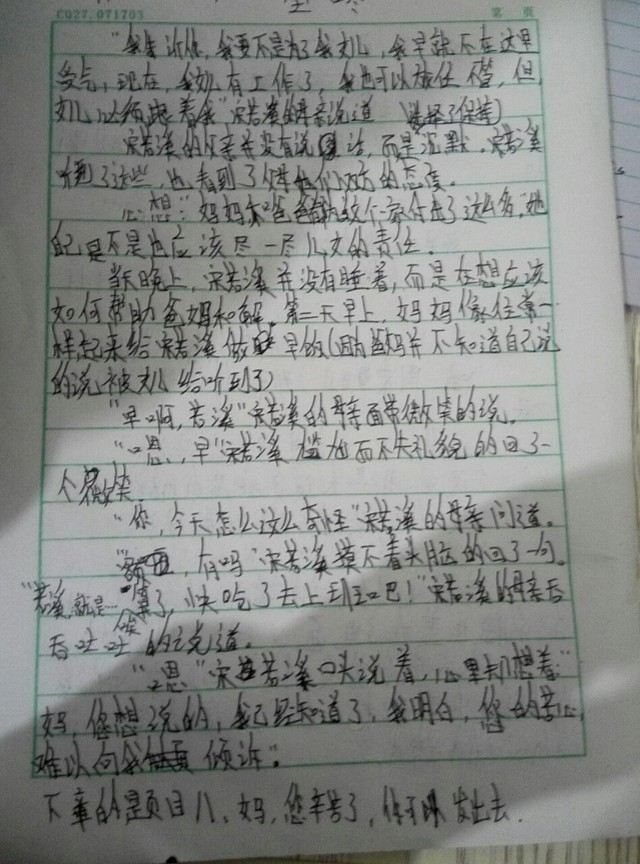 CQ27.071703 第 页
"我告诉你,我要不是为了我女儿,我早就不在这里
受气,现在,我女儿有工作了,我也可以放任不管,但
女儿必须跟着我"宋若溪的母亲说道 选择了保持
宋若溪的父亲并没有说话,而是沉默,宋若溪
听到了这些,也看到了父母他们双方的态度。
心想:"妈妈和爸爸为这个家付出了这么多,她
自己是不是也应该尽一尽儿女的责任。
当天晚上,宋若溪并没有睡着,而是在想应该
如何帮助爸妈和解。第二天早上,妈妈像往常一
样起来给宋若溪做早的(因为爸妈并不知道自己说
的说被女儿给听到了)
"早啊,若溪"宋若溪的母亲面带微笑的说。
"嗯,早"宋若溪尴尬而不失礼貌的回了一
个微笑。
"你,今天怎么这么奇怪"宋若溪的母亲问道。
"有吗"宋若溪摸不着头脑的回了一句。
"若溪,就是…算了,快吃了去上班吧!"宋若溪的母亲吞
吞吐吐的说道。
"嗯"宋若溪口头说着,心里却想着:"
妈,您想说的,我已经知道了,我明白,您的苦心
难以向我倾诉"。
下章的是题目八、妈,您辛苦了,你可以发出去.